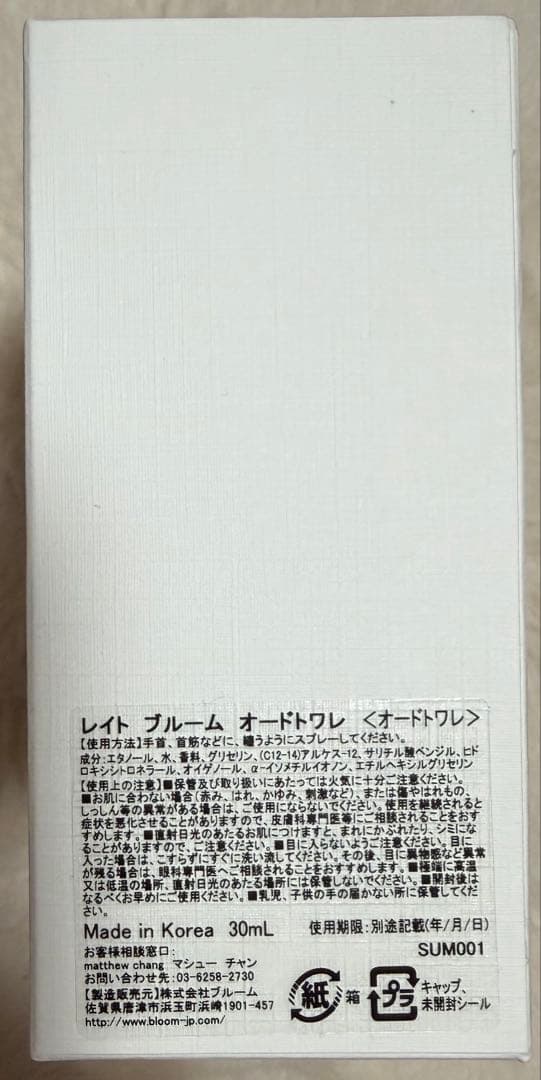 レイト ブルーム オードトワレ <オードトワレ>
【使用方法】手首、首筋などに、纏うようにスプレーしてください。
成分:エタノール、水、香料、グリセリン、(C12-14)アルケス-12、サリチル酸ベンジル、ヒド
ロキシシトロネラール、オイゲノール、α-イソメチルイオノン、エチルヘキシルグリセリン
【使用上の注意】■保管及び取り扱いにあたっては火気に十分ご注意ください。
■お肌に合わない場合(赤み、はれ、かゆみ、刺激など)、または傷やはれもの、
しっしん等の異常がある場合は、ご使用にならないでください。使用を継続されると
症状を悪化させることがありますので、皮膚科専門医等にご相談されることをおす
すめします。■直射日光のあたるお肌につけますと、まれにかぶれたり、シミにな
ることがありますので、ご注意ください。■目に入らないようご注意ください。目に
入った場合は、こすらずにすぐに洗い流してください。その後、目に異物感など異常
が残る場合は、眼科専門医へご相談されることをおすすめします。■極端に高温
又は低温の場所、直射日光のあたる場所には保管しないでください。■開封後は
なるべくお早めにご使用ください。■乳児、子供の手の届かない所に保管してくだ
さい。
Made in Korea 30mL 使用期限:別途記載(年/月/日)
お客様相談窓口: SUM001
matthew chang マシュー チャン
お問い合わせ先:03-6258-2730
【製造販売元】株式会社ブルーム
佐賀県唐津市浜玉町浜崎1901-457
http://www.bloom-jp.com/
紙 箱
プラ キャップ、
未開封シール